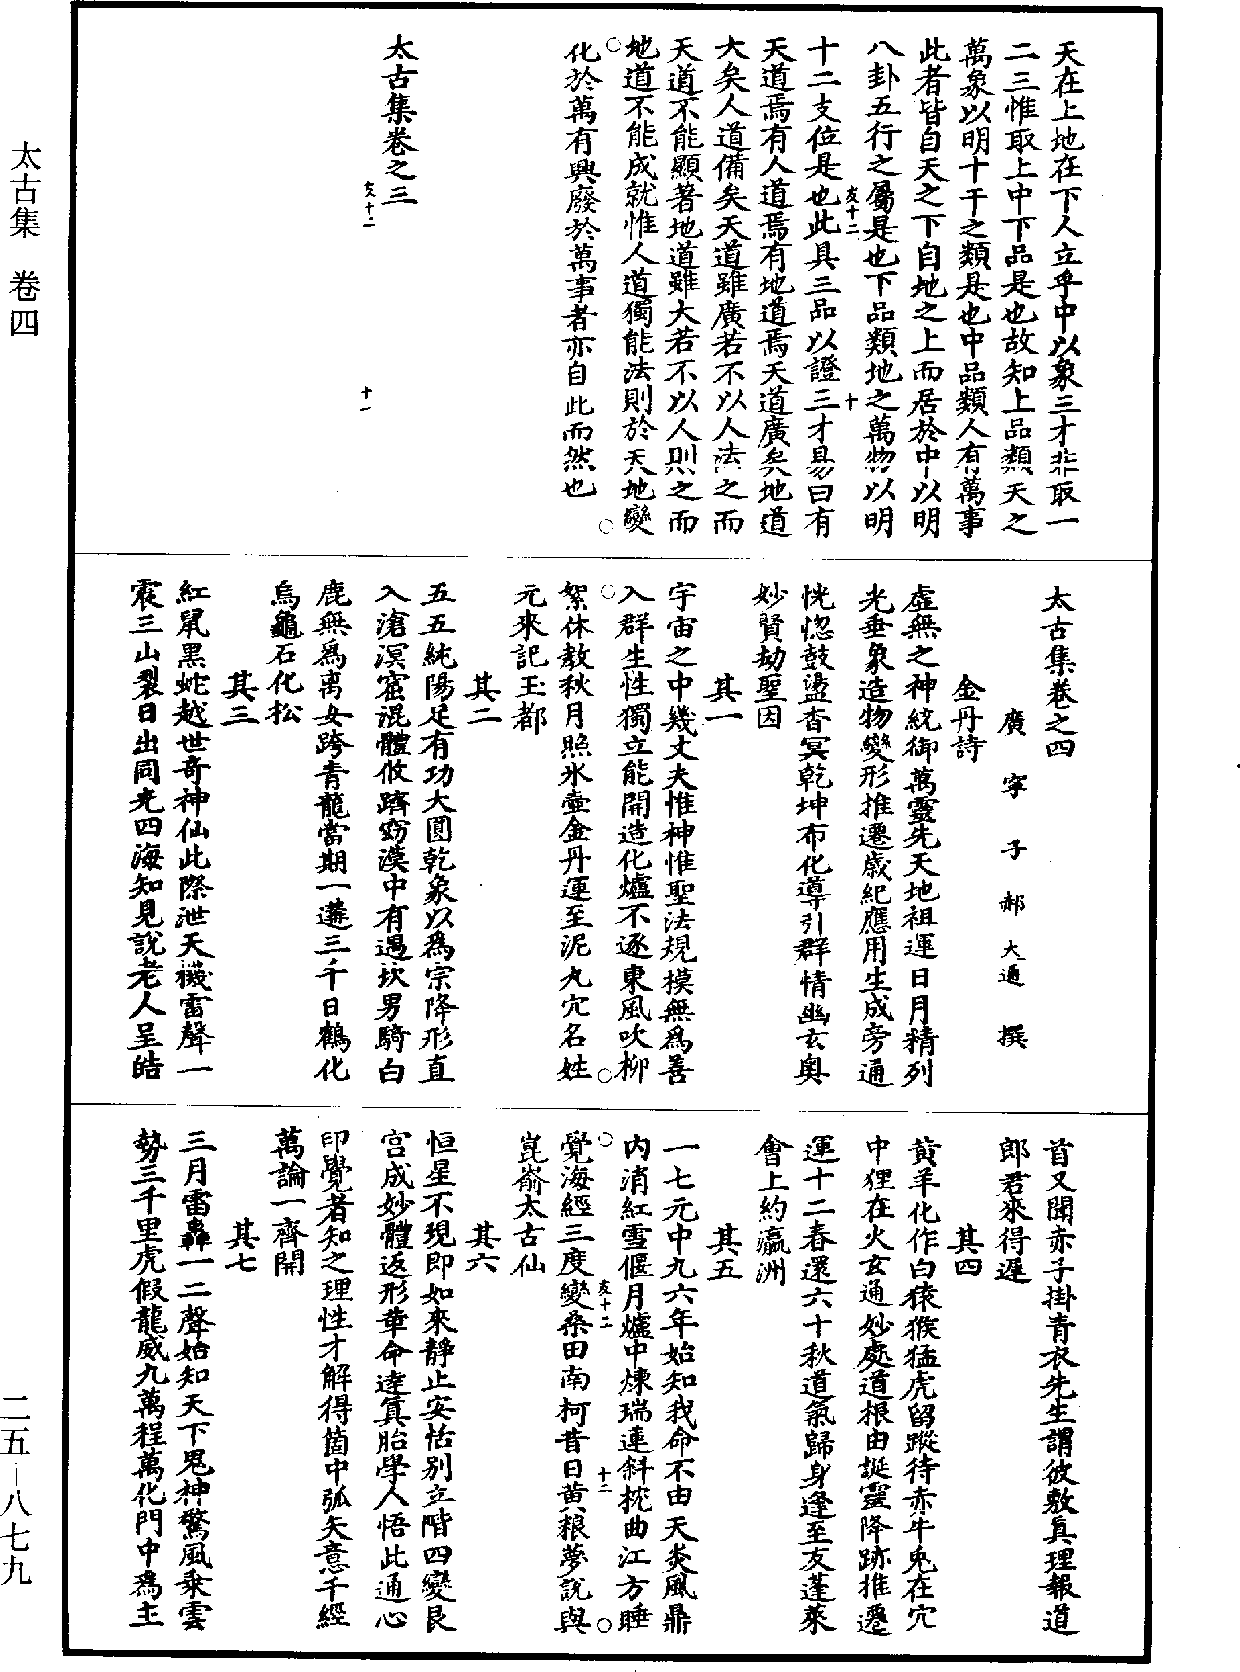 太古集　卷四
天在上地在下人立乎中以象三才非取一
二三惟取上中下品是也故知上品類天之
萬象以明十干之類是也中品類人有萬事
此者皆自天之下自地之上而居於中以明
八卦五行之屬是也下品類地之萬物以明
友十二　十
十二支位是也此具三品以證三才易曰有
天道焉有人道焉有地道焉天道廣矣地道
大矣人道備矣天道雖廣若不以人法之而
天道不能顯著地道雖大若不以人則之而
地道不能成就惟人道獨能法則於天地變
化於萬有興廢於萬事者亦自此而然也
太古集卷之三
友十二　十一
太古集卷之四
廣寧子郝大通撰
金丹詩
虛無之神統御萬靈先天地祖運日月精列
光垂象造物變形推遷歲紀應用生成旁通
恍惚鼓盪杳冥乾坤布化導引群情幽玄奧
妙賢劫聖因
其一
宇宙之中幾丈夫惟神惟聖法規模無爲善
入群生性獨立能開造化爐不逐東風吹柳
絮休教秋月照氷壺金丹運至泥丸穴名姓
元來記玉都
其二
五五純陽足有功大圓乾象以爲宗降形直
入滄溟窟混體攸躋窈漠中有遇坎男騎白
鹿無爲离女跨青龍當期一遘三千日鶴化
烏龜石化松
其三
紅鼠黑蛇越世奇神仙此際泄天機雷聲一
震三山裂日出同光四海知見說老人呈皓
首又聞赤子掛青衣先生謂彼敷眞理報道
郎君來得遲
其四
黃羊化作白猿猴猛虎留蹤待赤牛兔在穴
中狸在火玄通妙處道根由誕靈降跡推遷
運十二春還六十秋道氣歸身逢至友蓬萊
會上約瀛洲
其五
一七元中九六年始知我命不由天炎風鼎
內消紅雪偃月爐中煉瑞連斜枕曲江方睡
覺海經三度變桑田南柯昔日黃粮夢說與
友十二　十二
崑崙太古仙
其六
恒星不現即如來靜止安恬別立階四變艮
宮成妙體返形革命達眞胎學人悟此通心
印覺者知之理性才解得箇中弧矢意千經
萬論一齊開
其七
三月雷轟一二聲始知天下鬼神驚風乘雲
勢三千里虎假龍威九萬程萬化門中爲主
二五—八七九